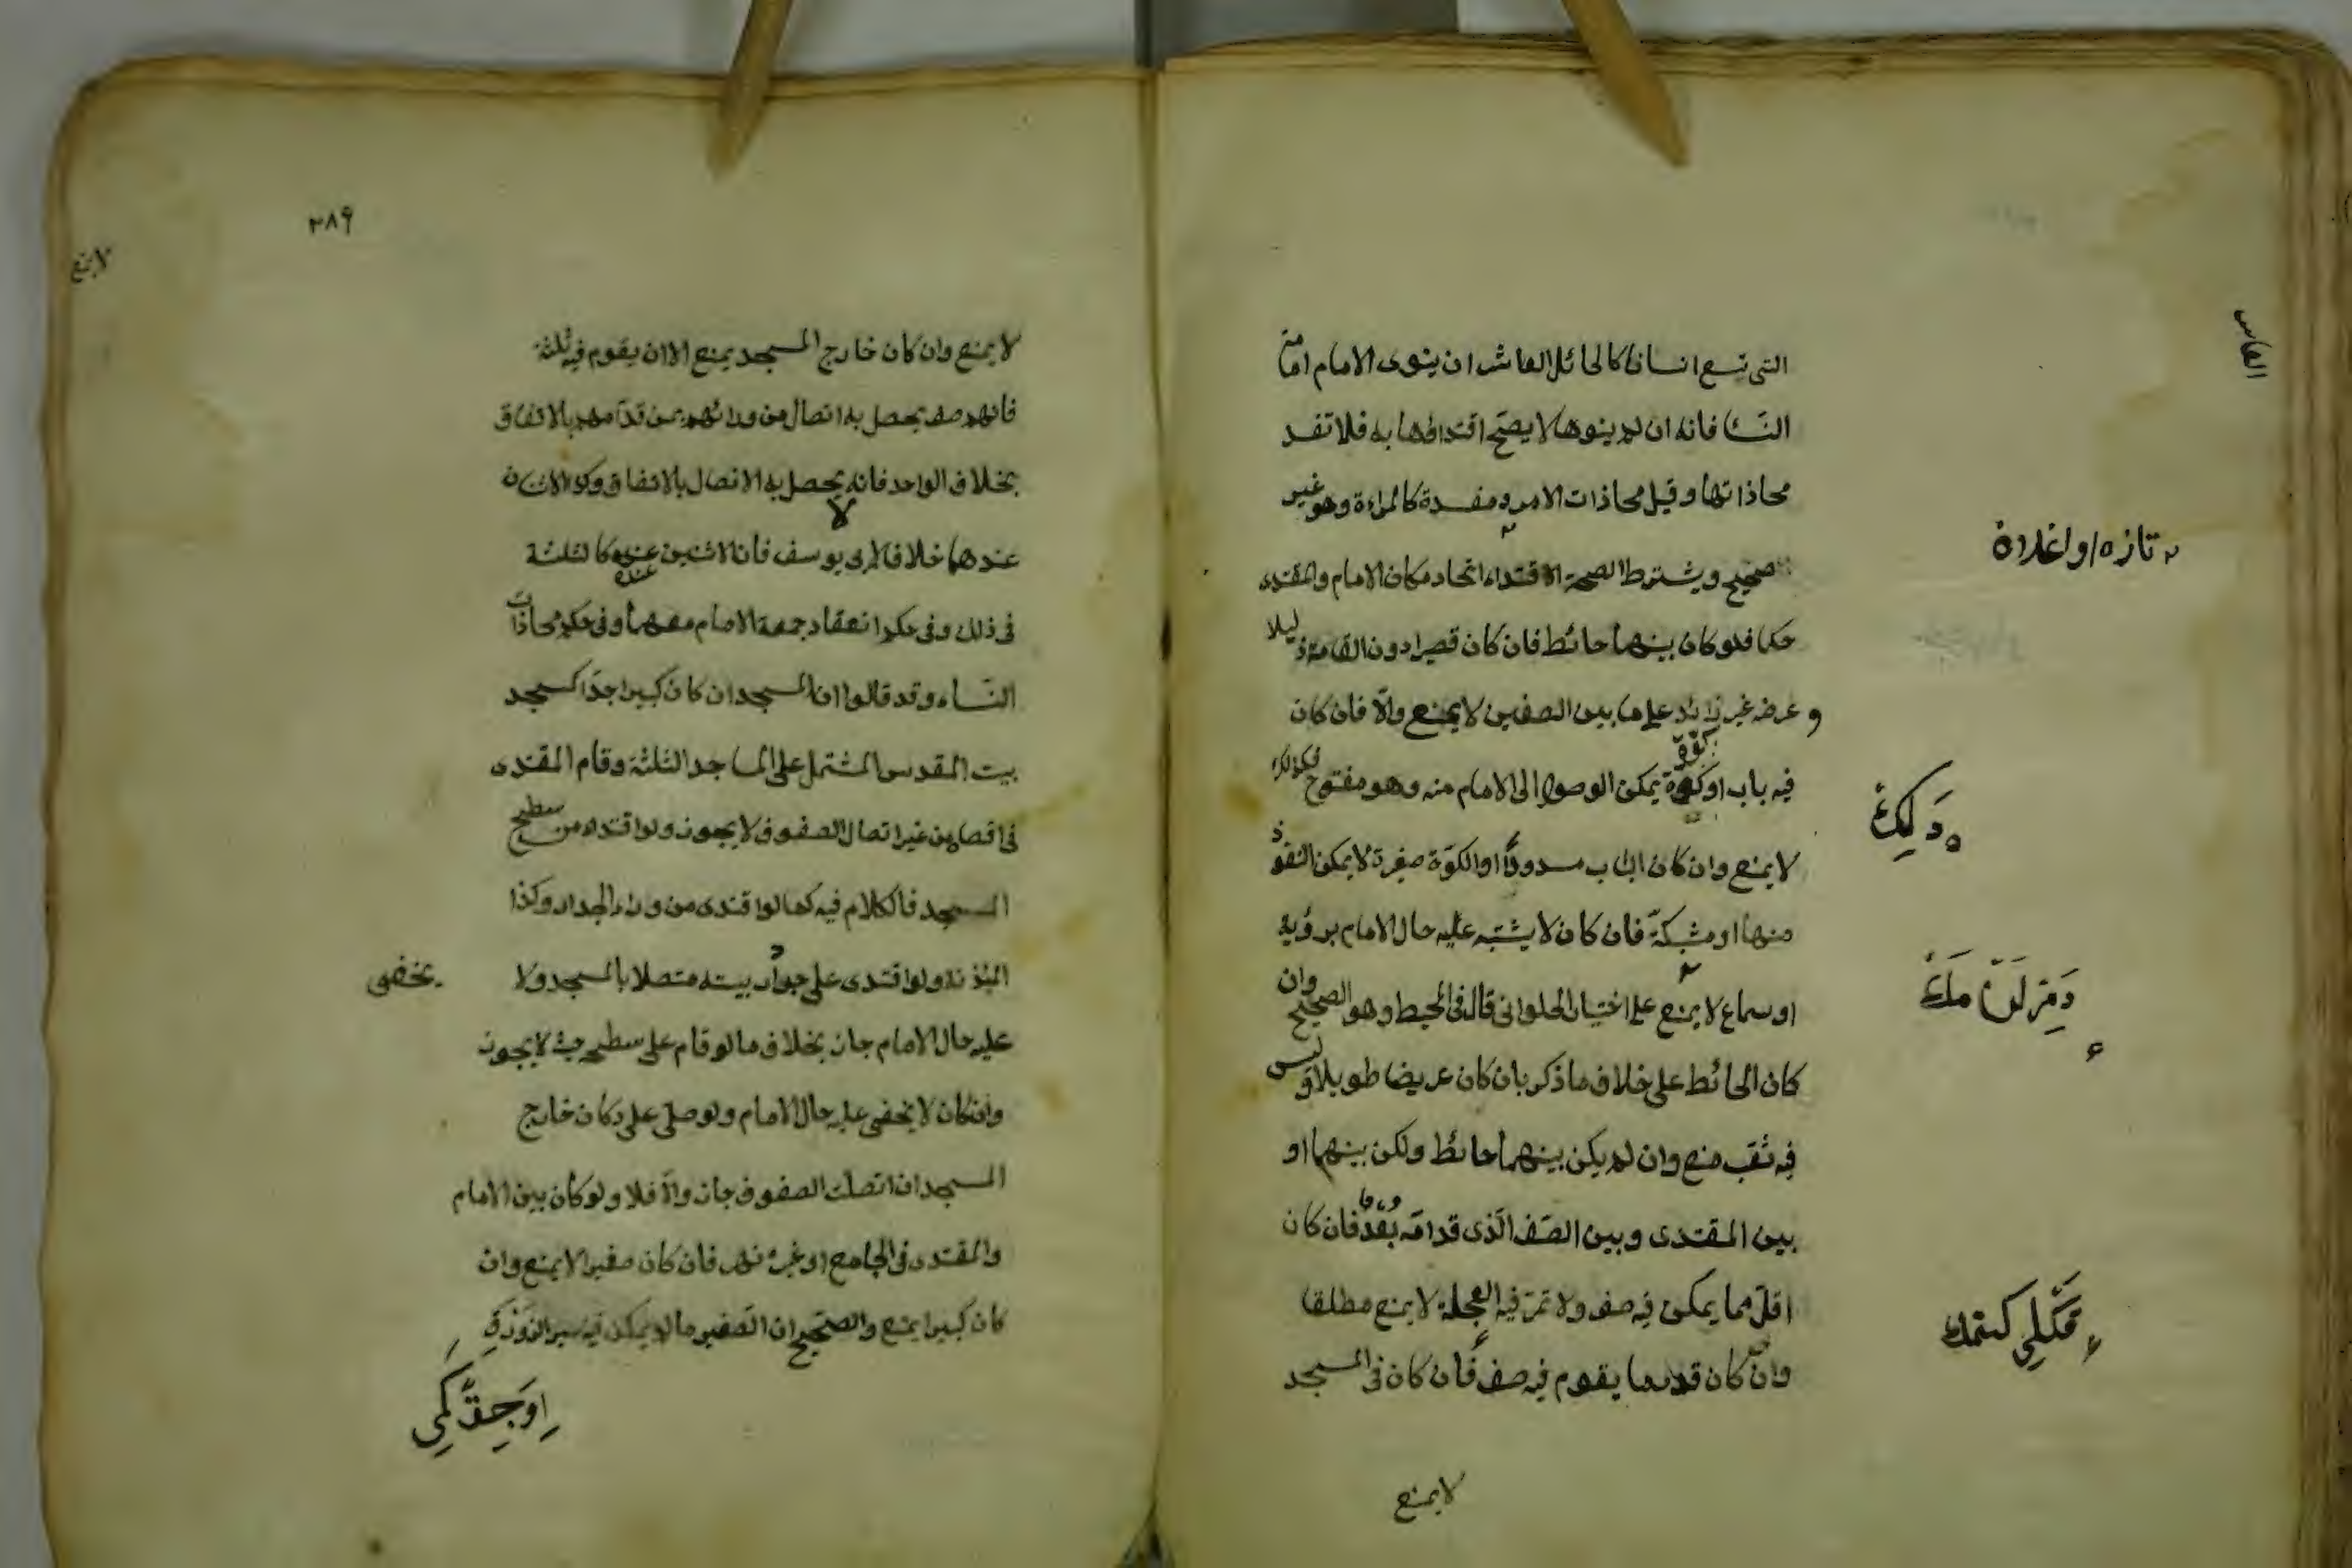 التى تسع انسانا كالحائل العاشر ان ينوى الامام امامة
النساء فانه ان لم ينوها لا يصح اقتداؤها به فلا تفسد
محاذاتها وقيل محاذات الامرد مفسدة كالمراءة وهو غير
الصحيح ويشترط لصحة الاقتداء اتحاد مكان الامام والمقتدى
حكما فلو كان بينهما حائط فان كان قصيرا دون القامة ذليلا
وعرضه غير زائد على ما بين الصفين لا يمنع والّا فان كان
فيه باب او كوة يمكن الوصول الى الامام منه وهو مفتوح
لا يمنع وان كان الباب مسدودًا او الكوّة صغيرة لا يمكن النفوذ
منها او مشبكة فان كان لا يشتبه عليه حال الامام برؤية
او سماع لا يمنع على اختيار الحلوانى قال فى المحيط وهو الصحيح وان
كان الحائط على خلاف ما ذكر بان كان عريضا طويلا وليس
فيه ثقب منع وان لم يكن بينهما حائط ولكن بينهما او
بين المقتدى وبين الصّف الّذى قدامه بُعْدٌ فان كان
اقلّ مما يمكن فيه صف ولا تمرّ فيه العجلة لا يمنع مطلقا
وان كان قدر ما يقوم فيه صف فان كان فى المسجد
لا يمنع
تازه اوغلان
٢٨٩
لا يمنع
لا يمنع وان كان خارج المسجد يمنع الا ان يقوم فيه ثلثة
فانهم صف يحصل به اتصال من ورائهم بمن قدّامهم بالاتفاق
بخلاف الواحد فانه لا يحصل به الاتصال بالاتفاق وكذا الاثنان
عندهما خلافا لابى يوسف فان الاثنين عنده كالثلثة
فى ذلك وفى حكم انعقاد جمعة الامام معهما وفى حكم محاذات
النّساء وقد قالوا ان المسجد ان كان كبيرا جدّا كمسجد
بيت المقدس المشتمل على المساجد الثلثة وقام المقتدى
فى اقصاه من غير اتصال الصفوف لا يجوز ولو اقتدى من سطح
المسجد فالكلام فيه كما لو اقتدى من وراء الجدار وكذا
المئذنة ولو اقتدى على جدار بيته متصلا بالمسجد ولا يخفى
عليه حال الامام جاز بخلاف ما لو قام على سطحه حيث لا يجوز
وان كان لا يخفى عليه حال الامام ولو صلّى على دكان خارج
المسجد ان اتصلت الصفوف جاز والّا فلا ولو كان بين الامام
والمقتدى فى الجامع او غيره نهر فان كان صغيرا لا يمنع وان
كان كبيرا يمنع والصّحيح ان الصّغير ما لا يمكن فيه سير الزورق